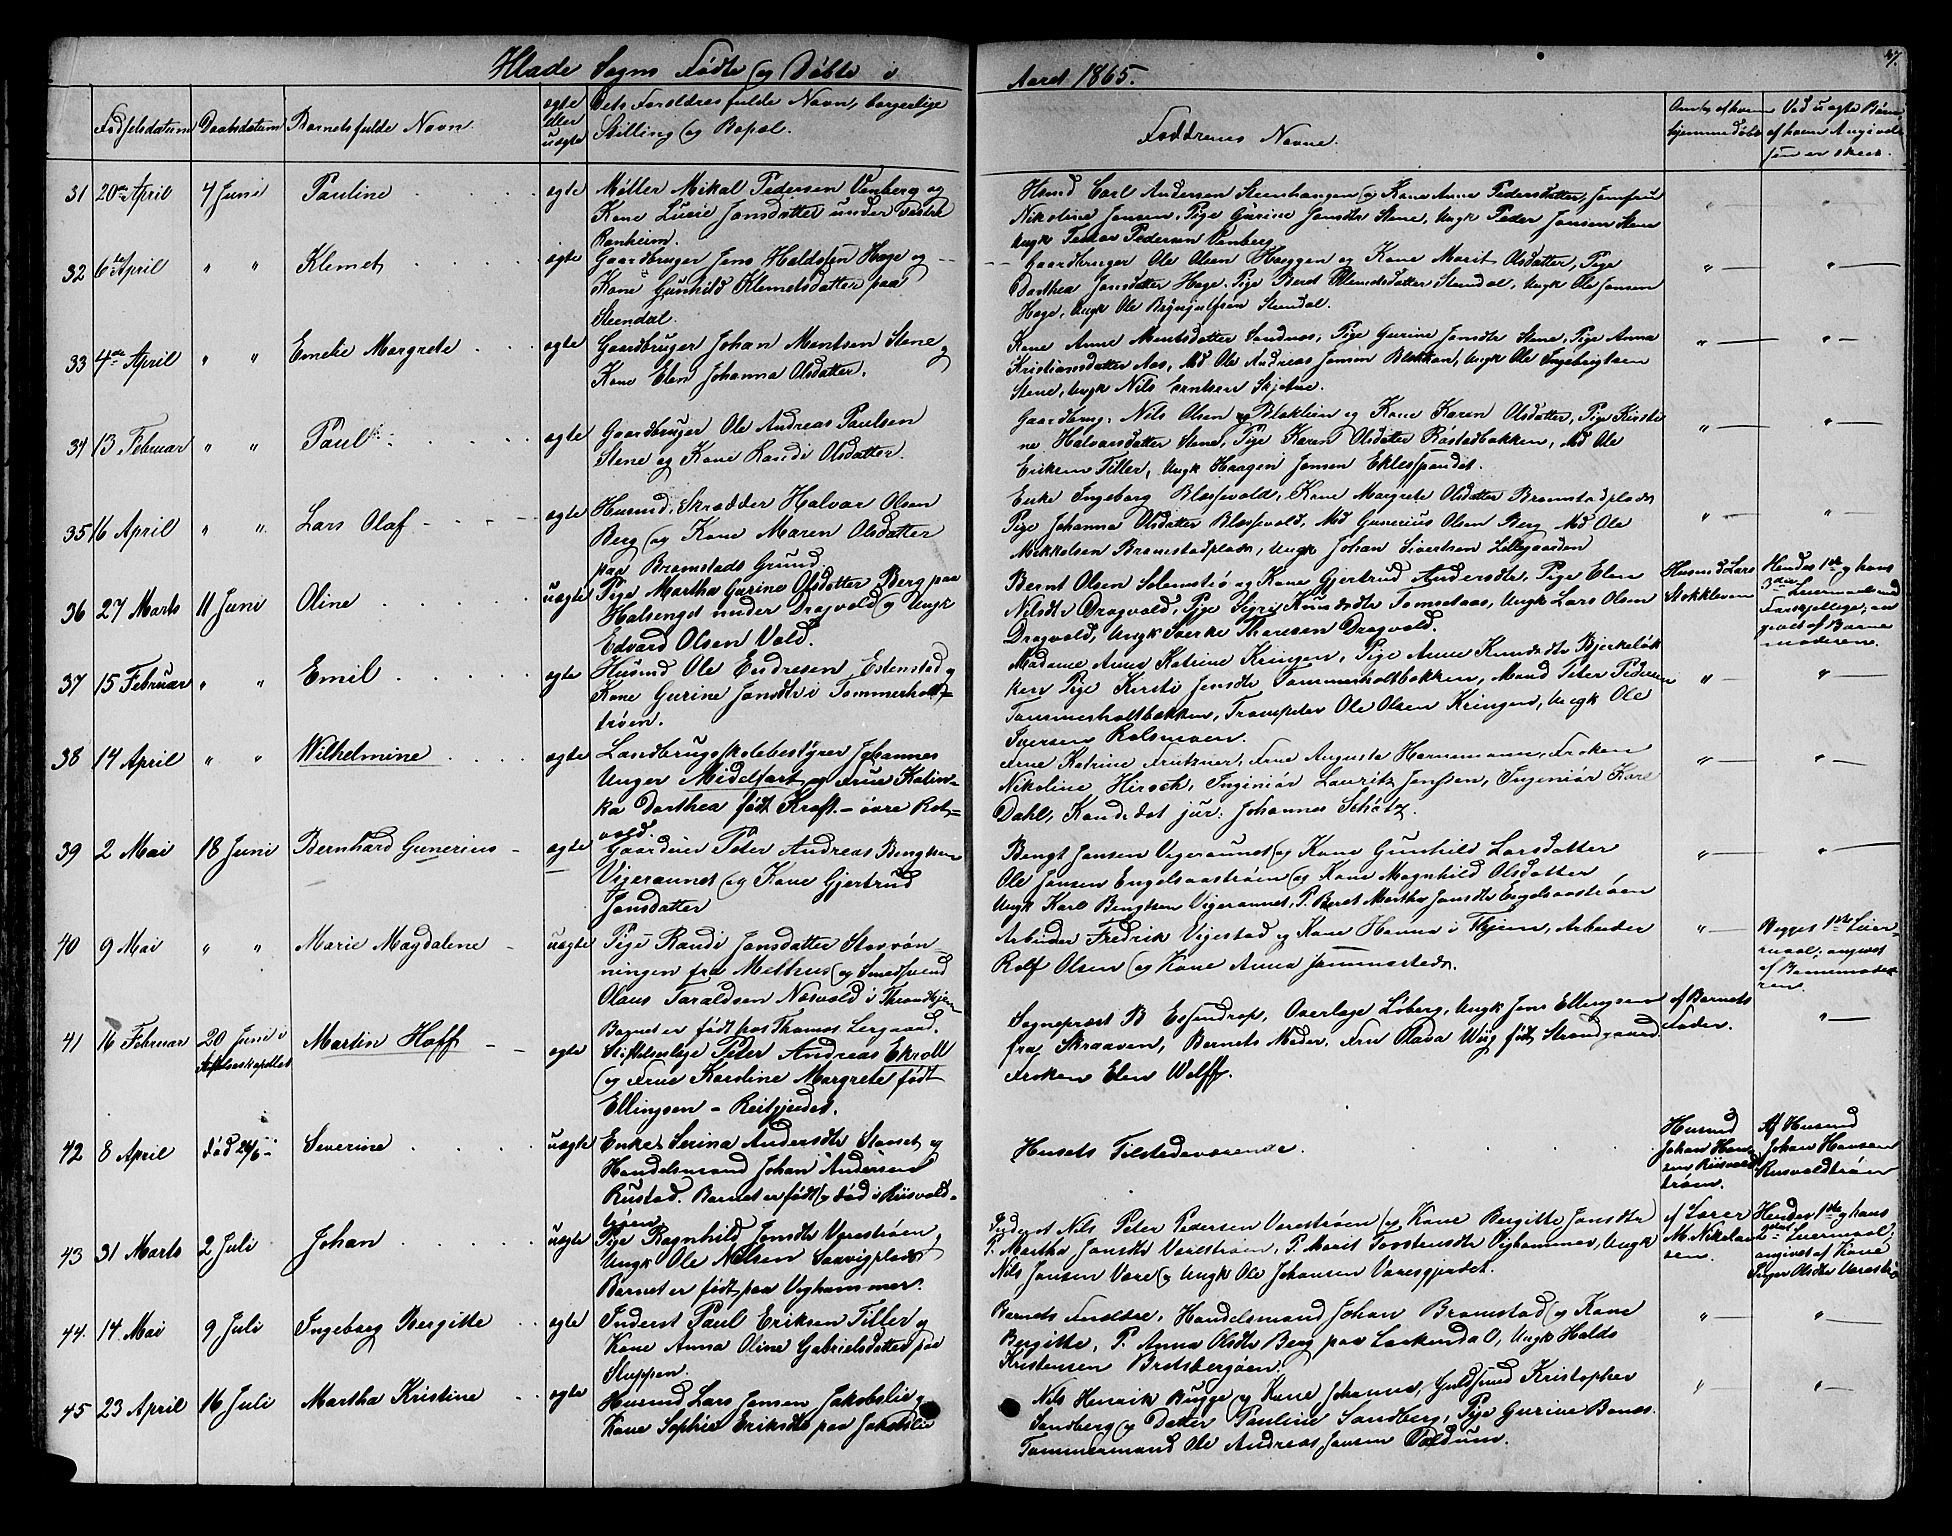 Hlade Sogns Fødte og Døbte i Aaret 1865.
Fødselsdatum Daabsdatum Barnets fulde Navn. ægte eller uægte Dets Forældres fulde Navn, borgerlige Stilling og Bopæl. Faddrenes Navne. Om og af hvem hjemmedøbt Ved uægte Børn af hvem Angivelsen er skeet.
31 20de April 4 Juni Pauline ægte
Møller Mikal Pedersen Venberg og
Kone Lusie Jonsdatter under Vestre
Ranheim.
Husmd Carl Andersen Steenhaugen og Kone Anne Pedersdatter, Jomfru
Nikoline Jansen, Pige Gurine Jonsdtr Stene, Ungk Peder Jonsen Stene
Ungk Peder Pedersen Venberg
32 6te April " " Klemet ægte
Gaardbruger Jens Haldsten Hoge og
Kone Gunhild Klemetsdatter paa
Steendal.
Gaardbruger Ole Olsen Hoeggen og Kone Marit Olsdatter, Pige
Dorthea Jonsdatter Hoge, Pige Beret Klemetsdatter Stendal, Ungk Ole Jonsen
Hoge, Ungk Ole Brynjulfsen Stendal.
33 4de April " " Emelie Margrete ægte
Gaardbruger Johan Mentsen Stene og
Kone Elen Johanna Olsdatter.
Kone Anne Mentsdatter Sandnes, Pige Gurine Jonsdtr Stene, Pige Anna
Kristiansdatter Aas, Md Ole Andreas Jonsen Blekkan, Ungk Ole Ingebrigtsen
Stene, Ungk Nils Erntsen Skjetne.
34 13 Februar " " Paul ægte
Gaardbruger Ole Andreas Paulsen
Stene og Kone Randi Olsdatter.
Gaardbrug. Nils Olsen Bloklien og Kone Karen Olsdatter, Pige Kirsti
ne Halvorsdatter Stene, Pige Karen Olsdatter Røstadbakken, Md Ole
Eriksen Tiller, Ungk Haagen Jonsen Eklesspandet.
35 16 April " " Lars Olaf ægte
Husmd. Skrædder Halvor Olsen
Berg og Kone Maren Olsdatter
paa Bromstads Grund.
Enke Ingeborg Blæsevold, Kone Margrete Olsdatter Bromstadplads
Pige Johanna Olsdatter Blæsevold, Md Gunerius Olsen Berg Md Ole
Mikkelsen Bromstadplads, Ungk Johan Sivertsen Lillegaarden
36 27 Marts 11 Juni Oline uægte
Pige Martha Gurine Olsdatter Berg paa
Halsenget under Dragvold og Ungk
Edvard Olsen Vold.
Bernt Olsen Solemstrø og Kone Gjertrud Andersdtr, Pige Elen
Nilsdtr Dragvold, Pige Sigri Knudsdtr Tomsetaas, Ungk Lars Olsen
Dragvold, Ungk Sverke Thoresen Dragvold.
Husmd Lars
Stokkleven
Hendes 1ste og hans
3die Leiermaal med
Forskjellige; an
givet af Barne
moderen.
37 15 Februar " " Emil ægte
Husmd Ole Endresen Estenstad og
Kone Gurine Jonsdtr i Tømmerholt-
trøen.
Madame Anne Katrine Kringen, Pige Anne Knudsdtr Bjerkeløk
ken Pige Kirsti Jonsdtr Tømmerholtbakken, Mand Peter Pedersen
Tømmerholtbakken, Trompeter Ole Olsen Kringen, Ungk Ole
Iversen Rolsmoen.
38 14 April " " Wilhelmine ægte
Landbrugsskolebestyrer Johannes
Unger Midelfart og Frue Katin-
ka Dorthea født Kraft - øvre Rot-
vold.
Frue Katrine Fritzner, Frue Augusta Hornemann, Frøken
Nikoline Hirsch, Ingeniør Lauritz Jenssen, Ingeniør Karl
Dahl, Kandidat jur. Johannes Schøtz
39 2 Mai 18 Juni Bernhard Gunerius ægte
Gaardeier Peter Andreas Bengtsen
Vigeraunet og Kone Gjertrud
Jonsdatter
Bengt Jonsen Vigeraunet og Kone Gunhild Larsdatter
Ole Jonsen Engelsaastrøen og Kone Magnhild Olsdatter
Ungk Karl Bengtsen Vigeraunet, P. Beret Martha Jonsdtr Engelsaastrøen
40 9 Mai " " Marie Magdalene uægte
Pige Randi Jonsdatter Storrøn-
ningen fra Melhus og Smedsvend
Olaus Taraldsen Nesvold i Throndhjem
Barnet er født hos Thomas Lergaard.
Arbeider Fredrik Vigestad og Kone Hanna i Thjem, Arbeider
Rolf Olsen og Kone Anna sammesteds.
Begges 1ste Leier-
maal; angivet
af Barnemode
ren.
41 16 Februar 20 Juni i Asylsaskapellet Martin Hoff ægte
Stiftelseslæge Peter Andreas Ekroll
og Frue Karoline Margrete født
Ellingsen - Reitgjerdet.
Sogneprest B Essendrop, Overlæge Løberg, Ungk Jens Ellingsen
fra Skraaven, Barnets Moder, Fru Olava Wiig født Strandgaard
Frøken Elen Wolff.
af Barnets
Fader.
42 8 April død 24/6 Severine uægte
Enke Serina Andersdtr Sloset og
Handelsmand Johan Andersen
Rustad. Barnet er født og død i Riisvold-
trøen
Husets Tilstedeværende.
Husmd
Johan Han
sen Riisvold
trøen.
Af Husmd
Johan Hansen
Riisvoldtrøen
43 31 Marts 2 Juli Johan uægte
Pige Ragnhild Jonsdtr Værestrøen,
Ungk Ole Nilsen Saxvigplads
Barnet er født paa Vighammer.
Inderst Nils Peter Pedersen Værestrøen og Kone Bergitte Jonsdtr
P. Martha Jonsdtr Værestrøen, P. Marit Torstensdtr Vighammer, Ungk
Nils Jonsen Være og Ungk Ole Johansen Væresgjerdet.
af Lærer
M. Nikolai
sen.
Hendes 1ste og hans
Leiermaal,
angivet af Kone
Inger Olsdtr Værestrø
44 14 Mai 9 Juli Ingeborg Bergitte ægte
Inderst Paul Eriksen Tiller og
Kone Anna Oline Gabrielsdatter paa
Sluppen.
Barnets Forældre, Handelsmand Johan Bromstad og Kone
Bergitte, P. Anna Olsdtr Berg paa Leekendal, Ungk Haldo
Kristensen Bratsbergøen.
45 23 April 16 Juli Martha Kristine ægte
Husmd Lars Jonsen Jakobslie og
Kone Sophie Eriksdtr paa Jakobslie
Nils Henrik Bugge og Kone Johanna, Guldsmed Kristopher
Sandberg og Datter Pauline Sandberg, Pige Gurine Bones.
Tømmermand Ole Andreas Jonsen Valdum.